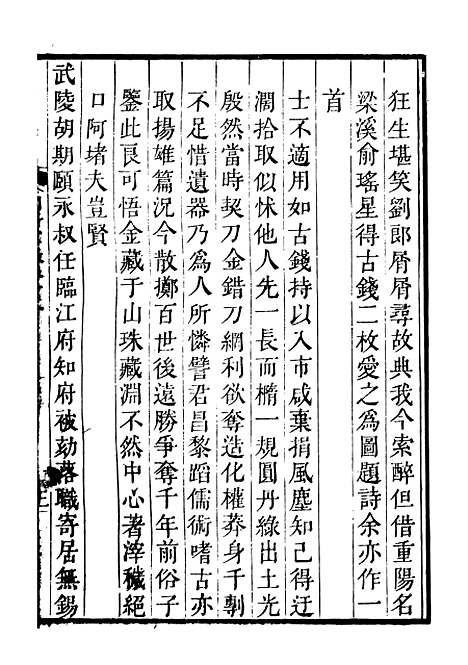 狂生堪笑劉郎屑屑尋故典我今索醉但借重陽名
梁溪俞瑤星得古錢二枚愛之為圖題詩余亦作一
首
士不適用如古錢持以入市咸棄捐風塵知己得迂
濶拾取似怵他人先一長而橢一規圓丹綠出土光
殷然當時契刀金錯刀網利欲奪造化權莽身千剸
不足惜遺器乃為人所憐譬君昌黎蹈儒術嗜古亦
取揚雄篇況今散擲百世後遠勝爭奪千年前俗子
鑒此良可悟金藏于山珠藏淵不然中心著滓穢絕
口阿堵夫豈賢
武陵胡期頤永叔任臨江府知府被劾落職寄居無錫